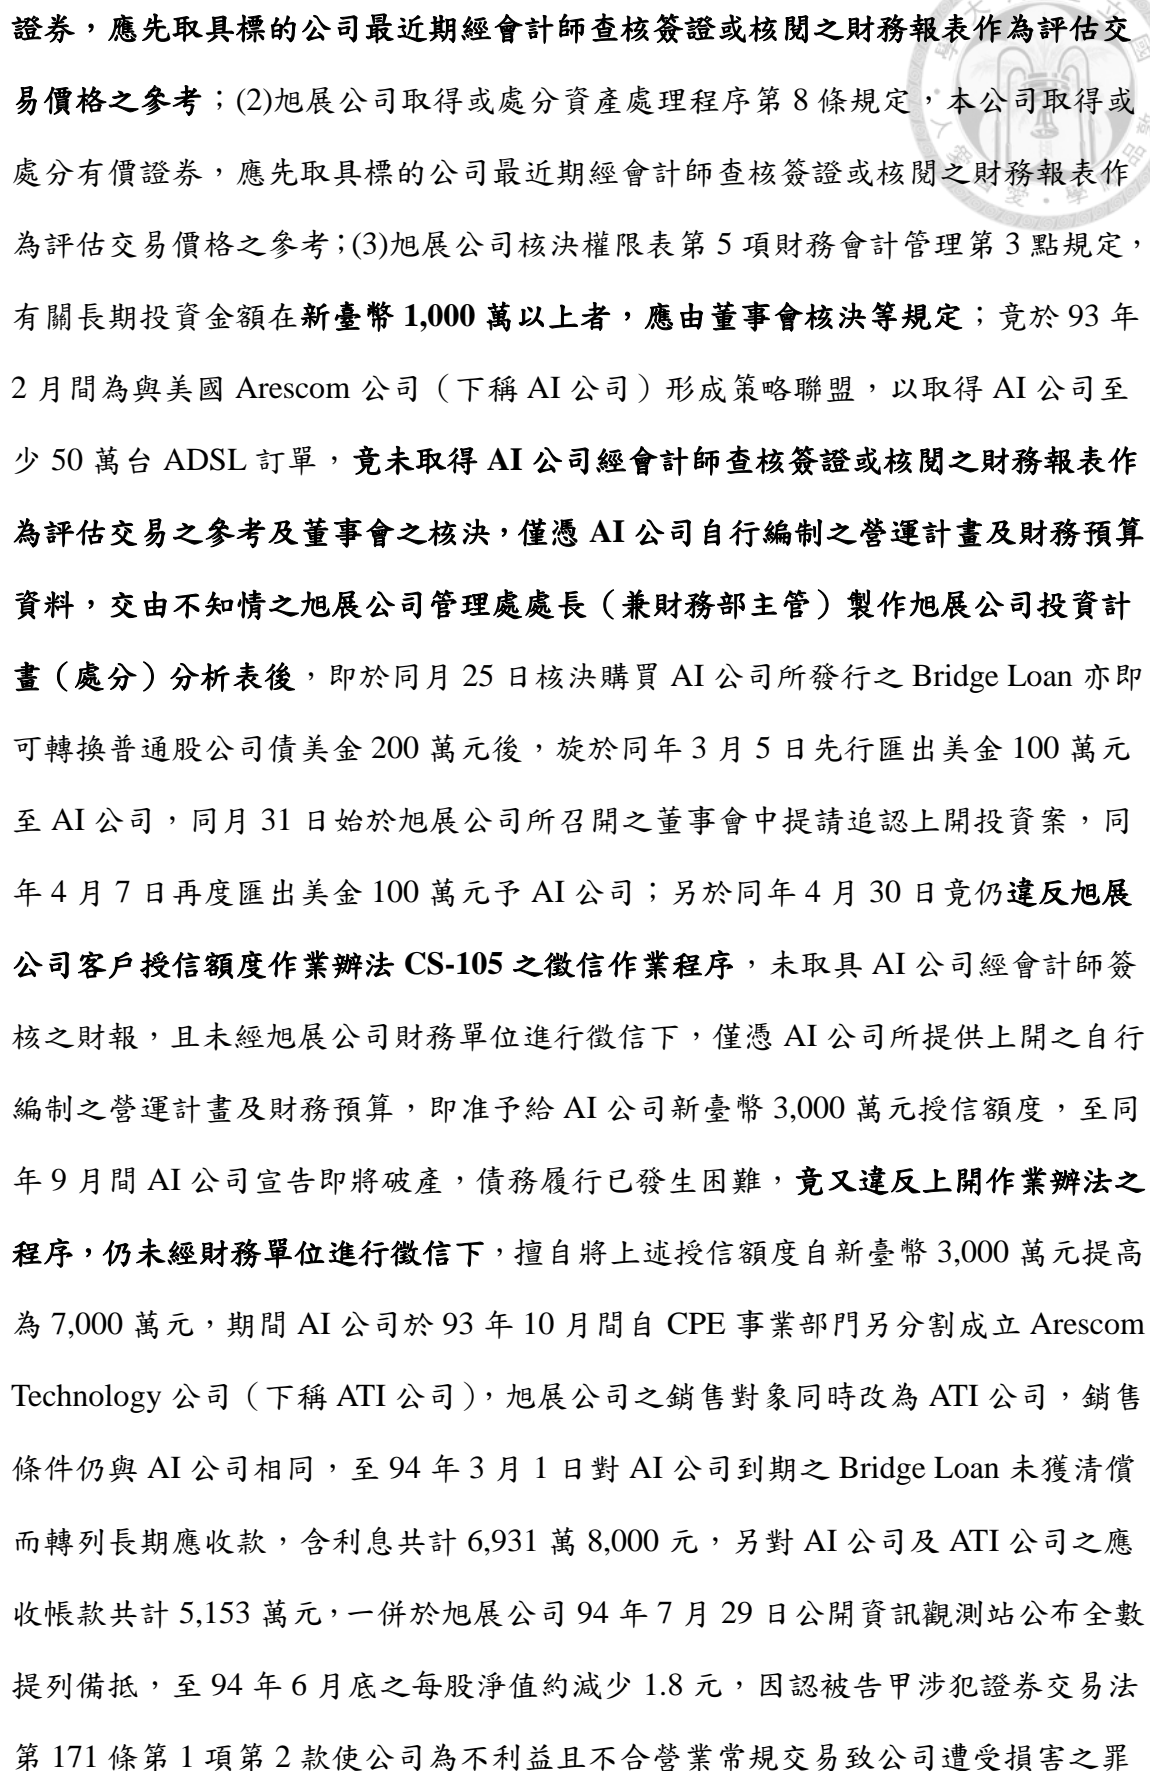 證券，應先取具標的公司最近期經會計師查核簽證或核閱之財務報表作為評估交
易價格之參考；(2)旭展公司取得或處分資產處理程序第 8 條規定，本公司取得或
處分有價證券，應先取具標的公司最近期經會計師查核簽證或核閱之財務報表作
為評估交易價格之參考；(3)旭展公司核決權限表第 5 項財務會計管理第 3 點規定，
有關長期投資金額在新臺幣 1,000 萬以上者，應由董事會核決等規定；竟於 93 年
2 月間為與美國 Arescom 公司（下稱 AI 公司）形成策略聯盟，以取得 AI 公司至
少 50 萬台 ADSL 訂單，竟未取得 AI 公司經會計師查核簽證或核閱之財務報表作
為評估交易之參考及董事會之核決，僅憑 AI 公司自行編制之營運計畫及財務預算
資料，交由不知情之旭展公司管理處處長（兼財務部主管）製作旭展公司投資計
畫（處分）分析表後，即於同月 25 日核決購買 AI 公司所發行之 Bridge Loan 亦即
可轉換普通股公司債美金 200 萬元後，旋於同年 3 月 5 日先行匯出美金 100 萬元
至 AI 公司，同月 31 日始於旭展公司所召開之董事會中提請追認上開投資案，同
年 4 月 7 日再度匯出美金 100 萬元予 AI 公司；另於同年 4 月 30 日竟仍違反旭展
公司客戶授信額度作業辦法 CS-105 之徵信作業程序，未取具 AI 公司經會計師簽
核之財報，且未經旭展公司財務單位進行徵信下，僅憑 AI 公司所提供上開之自行
編制之營運計畫及財務預算，即准予給 AI 公司新臺幣 3,000 萬元授信額度，至同
年 9 月間 AI 公司宣告即將破產，債務履行已發生困難，竟又違反上開作業辦法之
程序，仍未經財務單位進行徵信下，擅自將上述授信額度自新臺幣 3,000 萬元提高
為 7,000 萬元，期間 AI 公司於 93 年 10 月間自 CPE 事業部門另分割成立 Arescom
Technology 公司（下稱 ATI 公司），旭展公司之銷售對象同時改為 ATI 公司，銷售
條件仍與 AI 公司相同，至 94 年 3 月 1 日對 AI 公司到期之 Bridge Loan 未獲清償
而轉列長期應收款，含利息共計 6,931 萬 8,000 元，另對 AI 公司及 ATI 公司之應
收帳款共計 5,153 萬元，一併於旭展公司 94 年 7 月 29 日公開資訊觀測站公布全數
提列備抵，至 94 年 6 月底之每股淨值約減少 1.8 元，因認被告甲涉犯證券交易法
第 171 條第 1 項第 2 款使公司為不利益且不合營業常規交易致公司遭受損害之罪